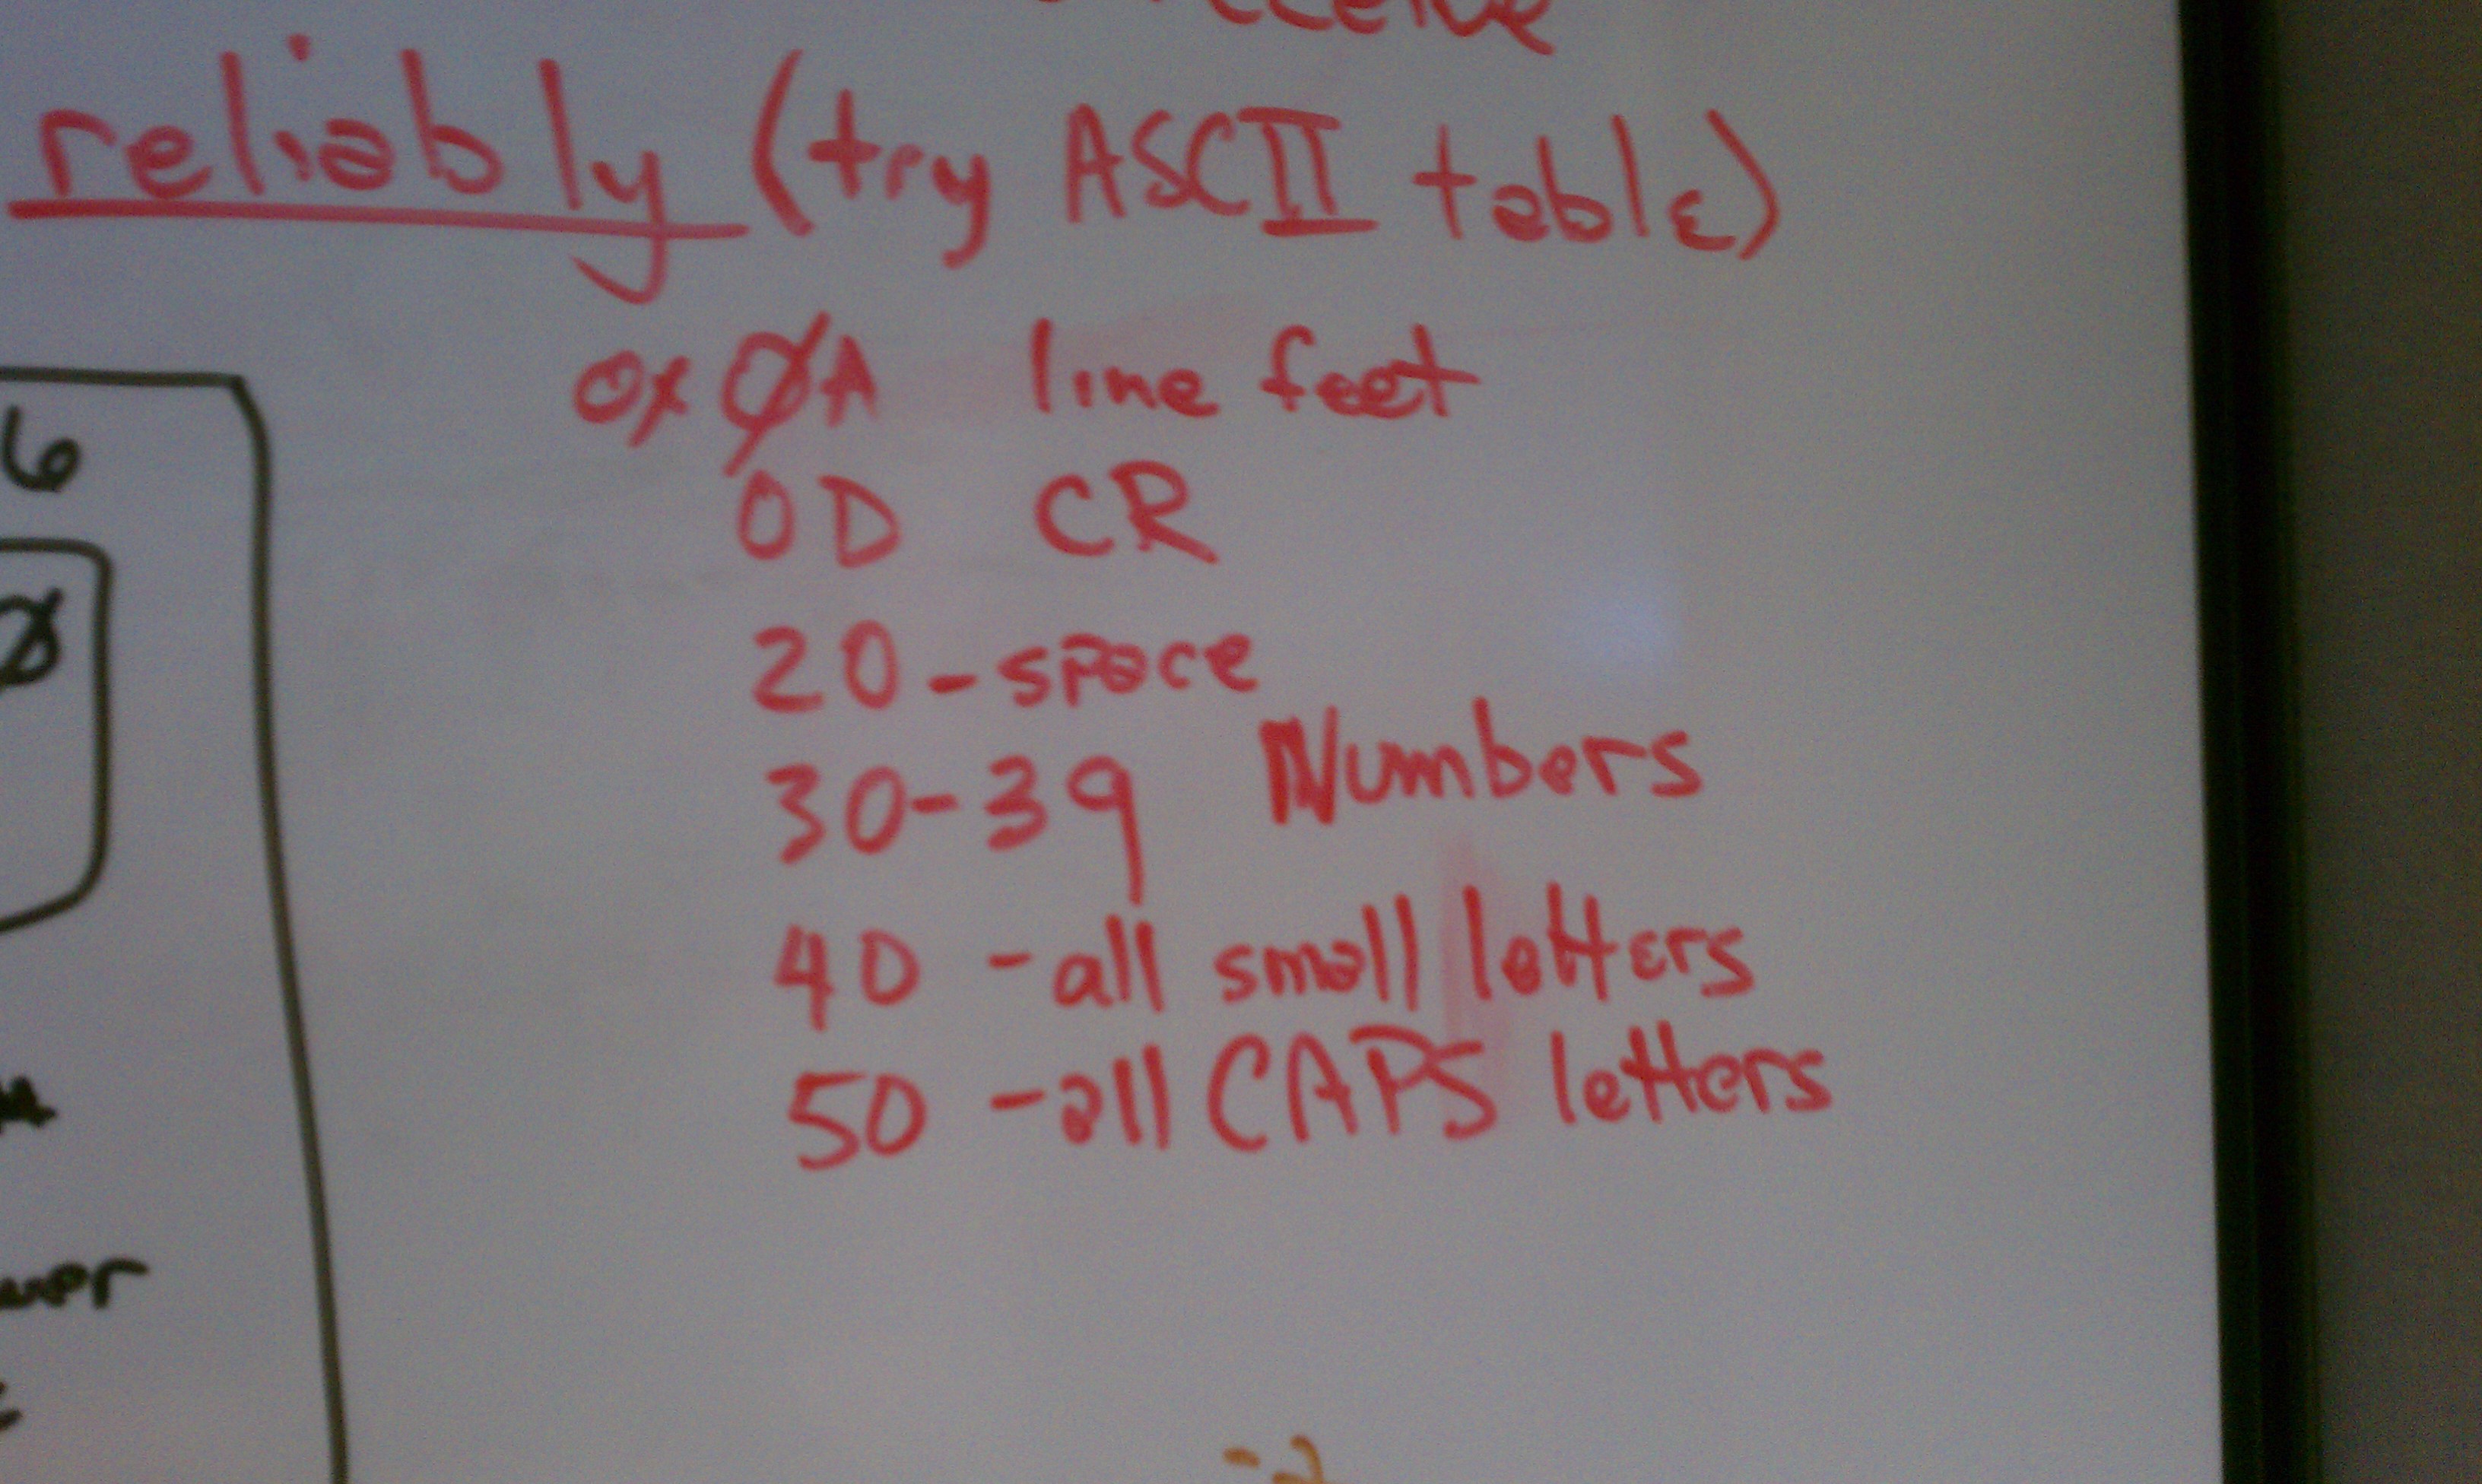 receive
reliably (try ASCII table)
0x ØA line feet
0D CR
20-space
30-39 Numbers
40 -all small letters
50 -all CAPS letters
6
Ø